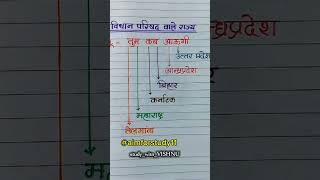 विधान परिषद वाले राज्य
तुम कब आऊगी
उत्तर प्रदेश
आन्ध्रप्रदेश
बिहार
कर्नाटक
महाराष्ट्र
तेलंगाना
#aimforstudy11
study_with_VISHNU